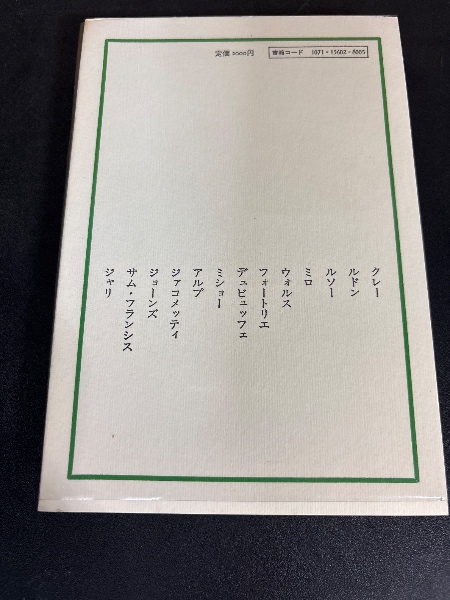 定価 2000円
書籍コード 1071・15602・8005
クレー
ルドン
ルソー
ミロ
ウォルス
フォートリエ
デュビュッフェ
ミショー
アルプ
ジァコメッティ
ジョーンズ
サム・フランシス
ジャリ